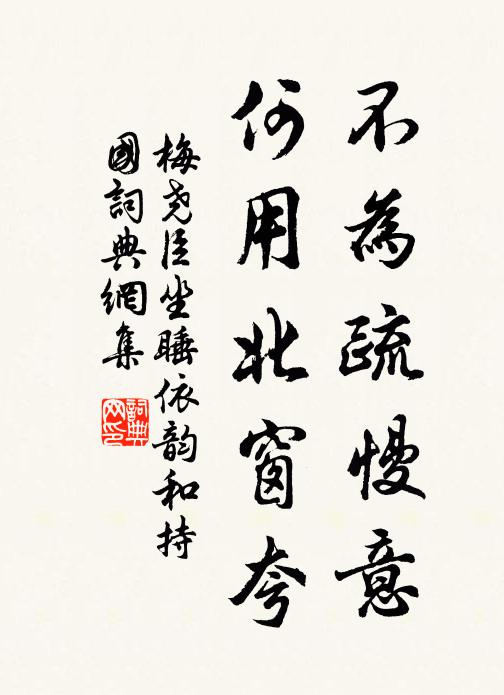 不為疏慢意
何用北窗夸
梅尧臣坐睡依韵和持
國詞典網集
詞典
网印